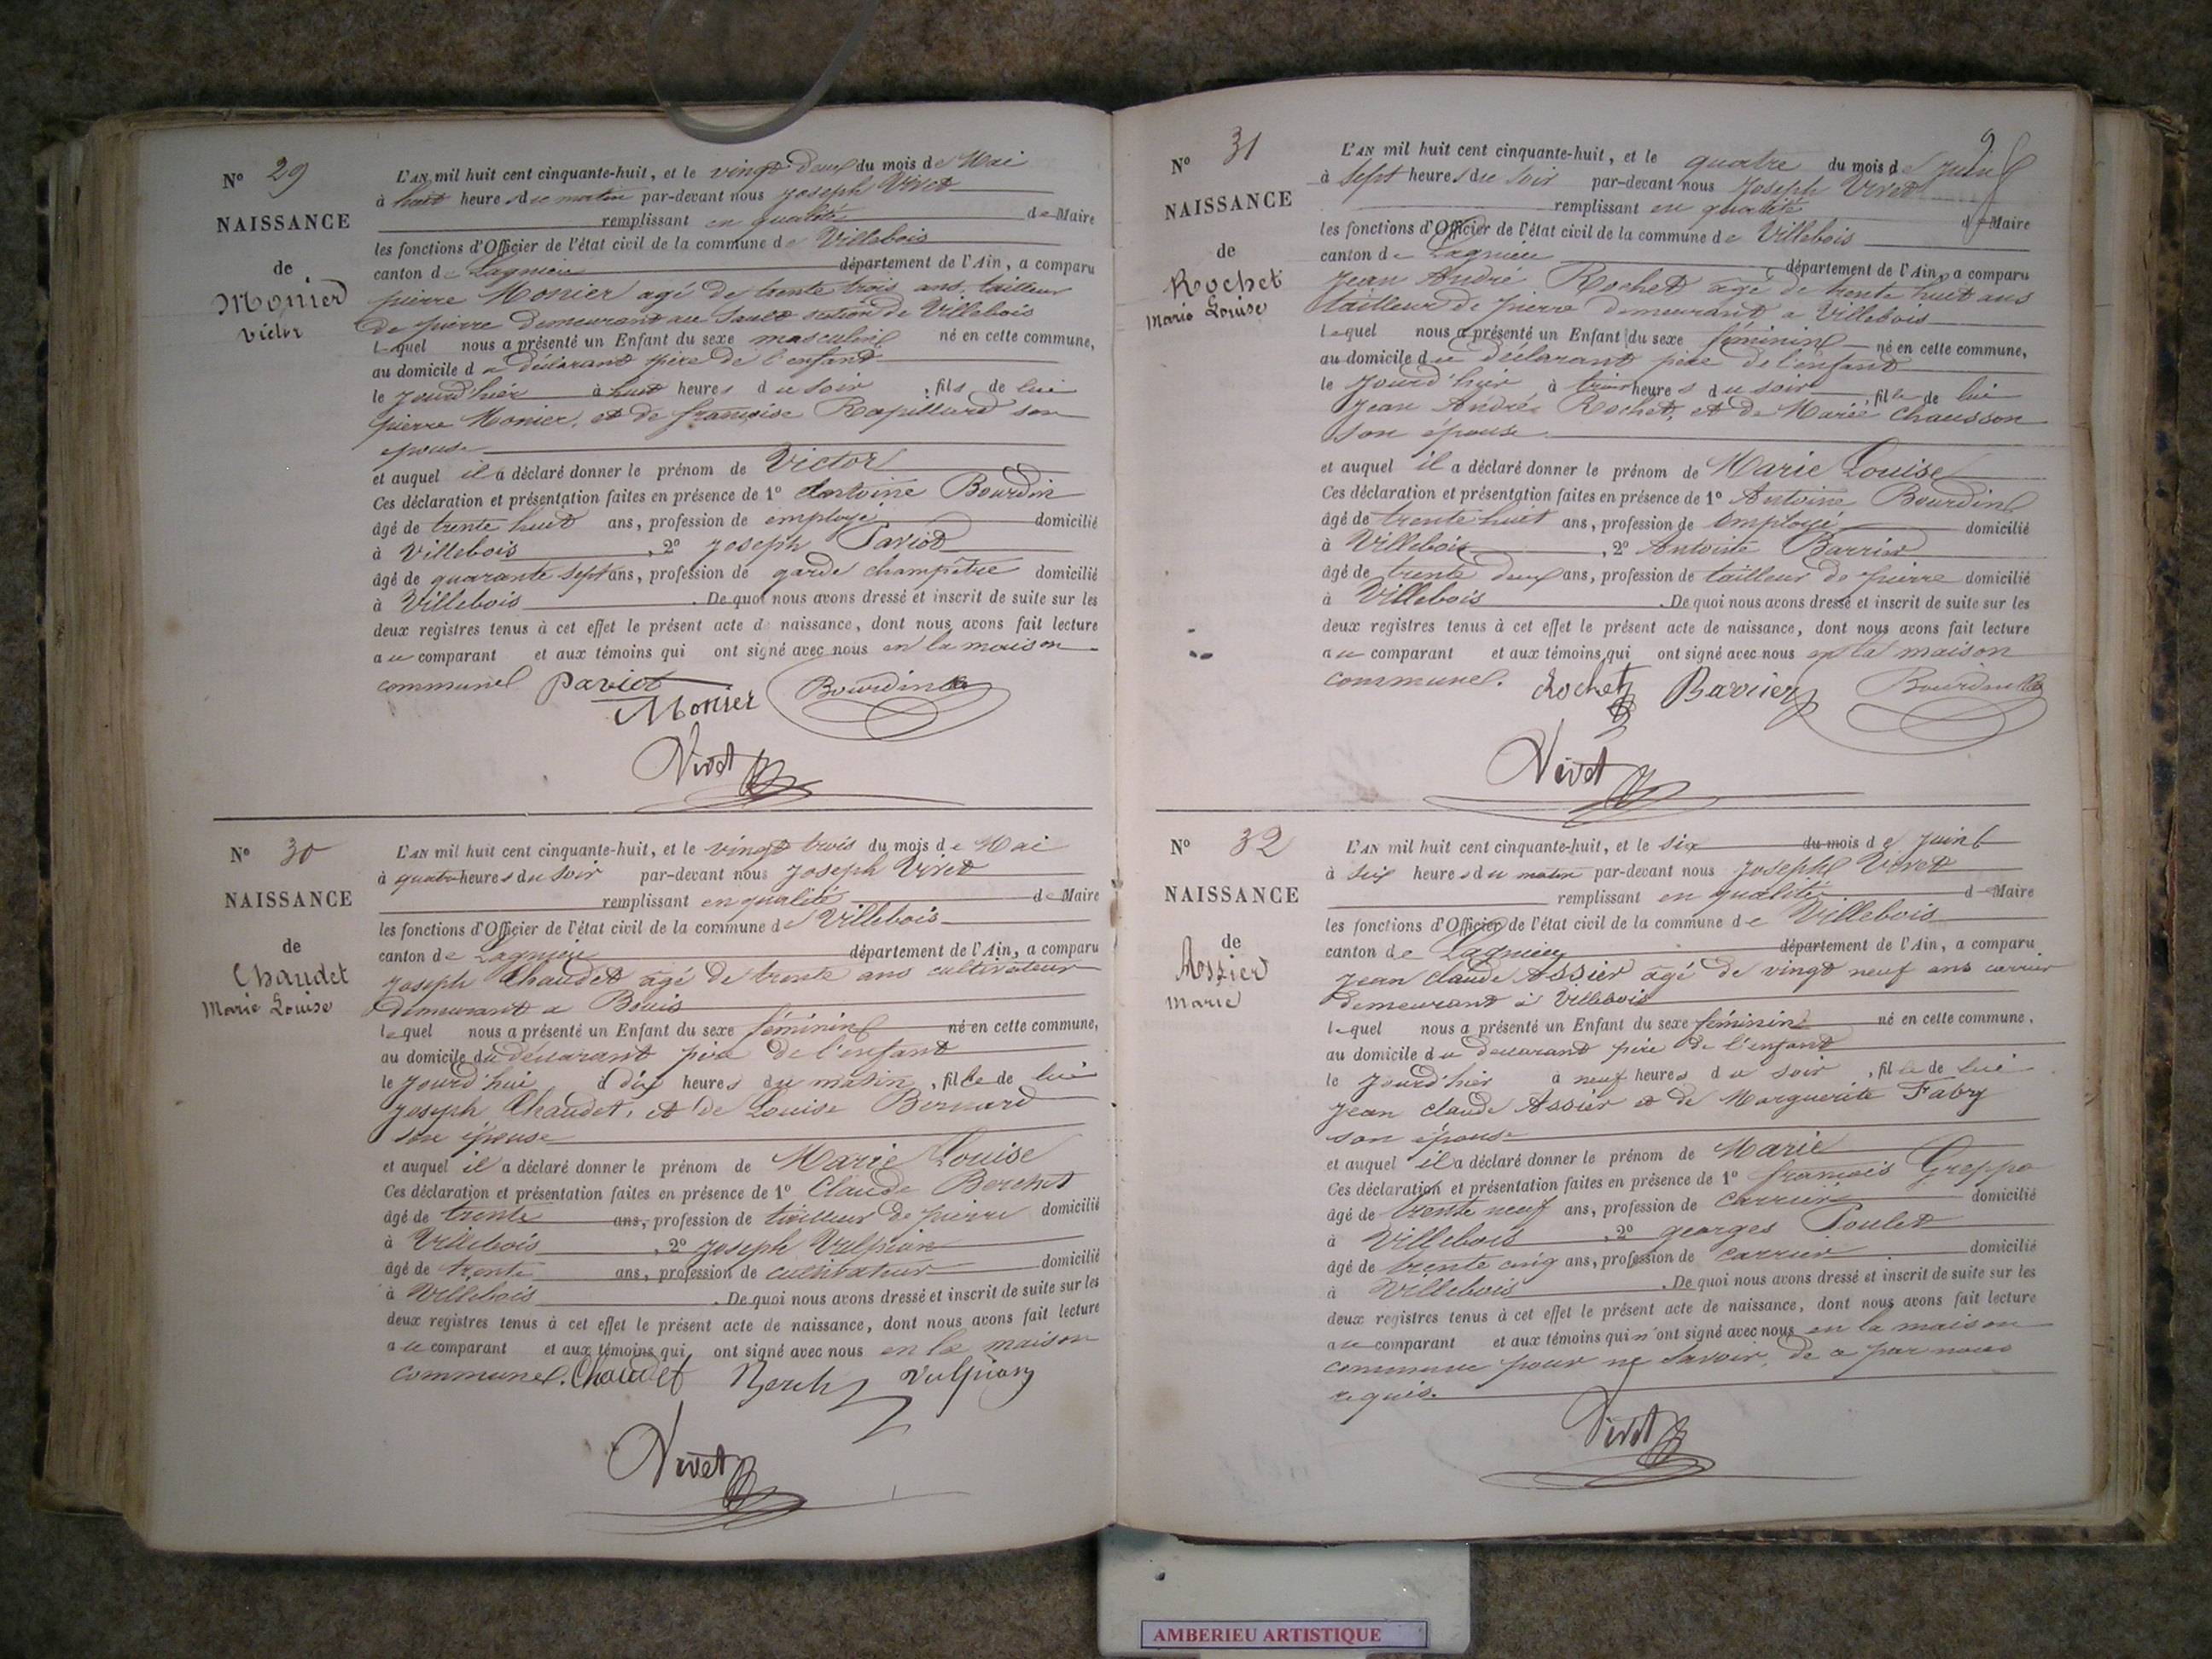 N° 29
NAISSANCE
de
Monier
Victor
L'AN mil huit cent cinquante-huit, et le vingt deux du mois de Mai
à huit heures du matin par-devant nous Joseph Vivet
remplissant en qualité de Maire
les fonctions d'Officier de l'état civil de la commune de Villebois
canton de Lagnieu département de l'Ain, a comparu
pierre Monier agé de trente trois ans, tailleur
de pierre demeurant au Sault section de Villebois
lequel nous a présenté un Enfant du sexe masculin né en cette commune,
au domicile du déclarant père de l'enfant
le jourd'hier à huit heures du soir, fils de lui
pierre Monier, et de françoise Rapillard son
epouse
et auquel il a déclaré donner le prénom de Victor
Ces déclaration et présentation faites en présence de 1° Antoine Bourdin
âgé de trente huit ans, profession de employé domicilié
à Villebois, 2° Joseph Paviot
âgé de quarante sept ans, profession de garde champêtre domicilié
à Villebois. De quoi nous avons dressé et inscrit de suite sur les
deux registres tenus à cet effet le présent acte de naissance, dont nous avons fait lecture
au comparant et aux témoins qui ont signé avec nous en la maison
commune. Paviot
Monier Bourdin
Vivet
N° 30
NAISSANCE
de
Chaudet
Marie Louise
L'AN mil huit cent cinquante-huit, et le vingt trois du mois de Mai
à quatre heures du soir par-devant nous Joseph Vivet
remplissant en qualité de Maire
les fonctions d'Officier de l'état civil de la commune de Villebois
canton de Lagnieu département de l'Ain, a comparu
Joseph Chaudet agé de trente ans cultivateur
demeurant a Bouis
lequel nous a présenté un Enfant du sexe féminin né en cette commune,
au domicile du déclarant père de l'enfant
le jourd'hui à dix heures du matin, fille de lui
Joseph Chaudet, et de Louise Bernard
son épouse
et auquel il a déclaré donner le prénom de Marie Louise
Ces déclaration et présentation faites en présence de 1° Claude Berchet
âgé de trente ans, profession de tailleur de pierre domicilié
à Villebois, 2° Joseph Vulpian
âgé de trente ans, profession de cultivateur domicilié
à Villebois. De quoi nous avons dressé et inscrit de suite sur les
deux registres tenus à cet effet le présent acte de naissance, dont nous avons fait lecture
au comparant et aux témoins qui ont signé avec nous en la maison
commune. Chaudet Berch Vulpian
Vivet
N° 31
NAISSANCE
de
Rochet
Marie Louise
L'AN mil huit cent cinquante-huit, et le quatre du mois de Juin
à Sept heures du soir par-devant nous Joseph Vivet
remplissant en qualité de Maire
les fonctions d'Officier de l'état civil de la commune de Villebois
canton de Lagnieu département de l'Ain, a comparu
Jean André Rochet agé de trente huit ans
tailleur de pierre demeurant a Villebois
lequel nous a présenté un Enfant du sexe féminin né en cette commune,
au domicile du déclarant père de l'enfant
le jourd'hier à trois heures du soir, fille de lui
Jean André Rochet, et de Marie Chausson
son épouse
et auquel il a déclaré donner le prénom de Marie Louise
Ces déclaration et présentation faites en présence de 1° Antoine Bourdin
âgé de trente huit ans, profession de employé domicilié
à Villebois, 2° Antoine Barrier
âgé de trente deux ans, profession de tailleur de pierre domicilié
à Villebois. De quoi nous avons dressé et inscrit de suite sur les
deux registres tenus à cet effet le présent acte de naissance, dont nous avons fait lecture
au comparant et aux témoins qui ont signé avec nous en la maison
commune. Rochet Barrier Bourdin
Vivet
N° 32
NAISSANCE
de
Assier
Marie
L'AN mil huit cent cinquante-huit, et le six du mois de Juin
à six heures du matin par-devant nous Joseph Vivet
remplissant en qualité de Maire
les fonctions d'Officier de l'état civil de la commune de Villebois
canton de Lagnieu département de l'Ain, a comparu
Jean Claude Assier âgé de vingt neuf ans carrier
demeurant à Villebois
lequel nous a présenté un Enfant du sexe féminin né en cette commune,
au domicile du déclarant père de l'enfant
le jourd'hier à neuf heures du soir, fille de lui
Jean Claude Assier et de Marguerite Fabry
son épouse
et auquel il a déclaré donner le prénom de Marie
Ces déclaration et présentation faites en présence de 1° françois Greppo
âgé de trente neuf ans, profession de carrier domicilié
à Villebois, 2° georges Poulet
âgé de trente cinq ans, profession de carrier domicilié
à Villebois. De quoi nous avons dressé et inscrit de suite sur les
deux registres tenus à cet effet le présent acte de naissance, dont nous avons fait lecture
au comparant et aux témoins qui n'ont signé avec nous en la maison
commune pour ne savoir, de ce par nous
requis.
Vivet
AMBERIEU ARTISTIQUE